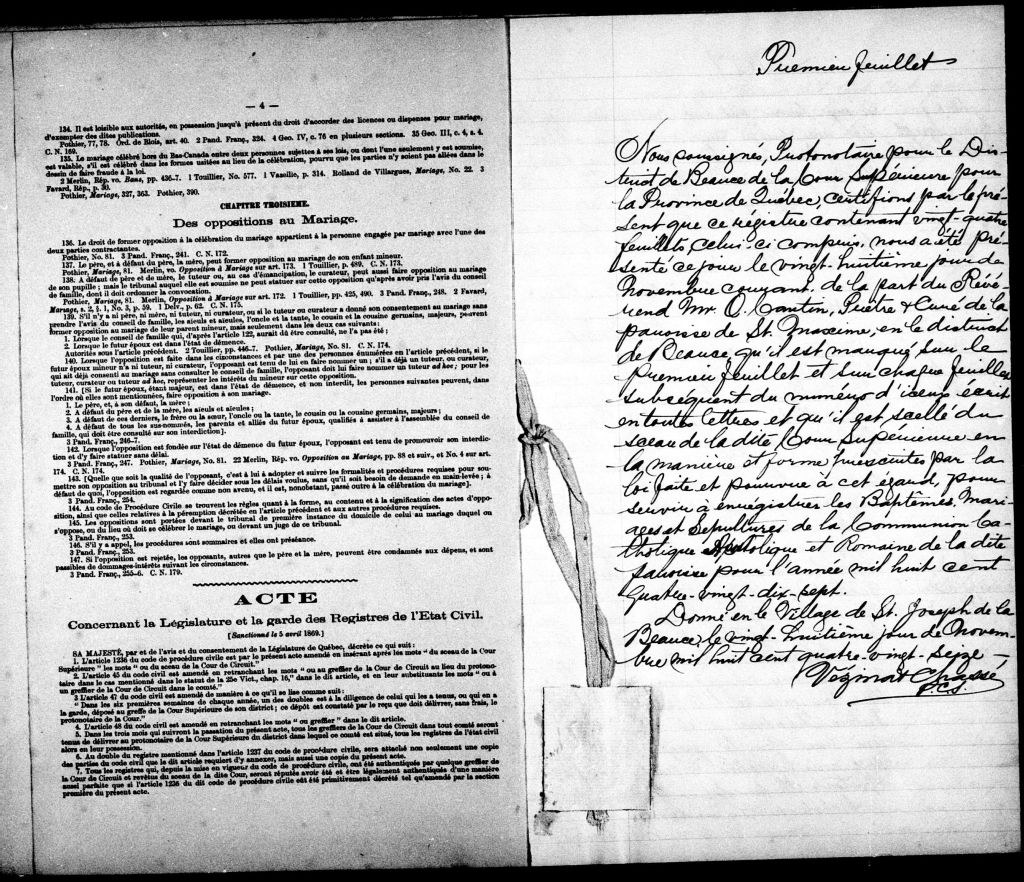 — 4 —
134. Il est loisible aux autorités, en possession jusqu'à présent du droit d'accorder des licences ou dispenses pour mariage,
d'exempter des dites publications.
Pothier, 77, 78. Ord. de Blois, art. 40. 2 Pand. Franç., 324. 4 Geo. IV, c. 76 en plusieurs sections. 35 Geo. III, c. 4, s. 4.
C. N. 169.
135. Le mariage célébré hors du Bas-Canada entre deux personnes sujettes à ses lois, ou dont l'une seulement y est soumise,
est valable, s'il est célébré dans les formes usitées au lieu de la célébration, pourvu que les parties n'y soient pas allées dans le
dessin de faire fraude à la loi.
2 Merlin, Rép. vo. Bans, pp. 436-7. 1 Touillier, No. 577. 1 Vazeille, p. 314. Rolland de Villargues, Mariage, No. 22. 3
Favard, Rép., p. 30.
Pothier, Mariage, 327, 363. Pothier, 390.
CHAPITRE TROISIEME.
Des oppositions au Mariage.
136. Le droit de former opposition à la célébration du mariage appartient à la personne engagée par mariage avec l'une des
deux parties contractantes.
Pothier, No. 81. 3 Pand. Franç., 241. C. N. 172.
137. Le père, et à défaut du père, la mère, peut former opposition au mariage de son enfant mineur.
Pothier, Mariage, 81. Merlin, vo. Opposition à Mariage sur art. 173. 1 Touillier, p. 489. C. N. 173.
138. A défaut de père et de mère, le tuteur ou, au cas d'émancipation, le curateur, peut aussi faire opposition au mariage
de son pupille ; mais le tribunal auquel elle est soumise ne peut statuer sur cette opposition qu'après avoir pris l'avis du conseil
de famille, dont il doit ordonner la convocation.
Pothier, Mariage, 81. Merlin, Opposition à Mariage sur art. 172. 1 Touillier, pp. 425, 490. 3 Pand. Franç., 248. 2 Favard,
Mariage, s. 2, § 1, No. 3, p. 59. 1 Delv., p. 62. C. N. 175.
139. S'il n'y a ni père, ni mère, ni tuteur, ni curateur, ou si le tuteur ou curateur a donné son consentement au mariage sans
prendre l'avis du conseil de famille, les aïeuls et aïeules, l'oncle et la tante, le cousin et la cousine germains, majeurs, peuvent
former opposition au mariage de leur parent mineur, mais seulement dans les deux cas suivants :
1. Lorsque le conseil de famille qui, d'après l'article 122, aurait dû être consulté, ne l'a pas été ;
2. Lorsque le futur époux est dans l'état de démence.
Autorités sous l'article précédent. 2 Touillier, pp. 446-7. Pothier, Mariage, No. 81. C. N. 174.
140. Lorsque l'opposition est faite dans les circonstances et par une des personnes énumérées en l'article précédent, si le
futur époux mineur n'a ni tuteur, ni curateur, l'opposant est tenu de lui en faire nommer un ; s'il a déjà un tuteur, ou curateur,
qui ait déjà consenti au mariage sans consulter le conseil de famille, l'opposant doit lui faire nommer un tuteur ad hoc ; pour les
tuteur, curateur ou tuteur ad hoc, représenter les intérêts du mineur sur cette opposition.
141. [Si le futur époux, étant majeur, est dans l'état de démence, et non interdit, les personnes suivantes peuvent, dans
l'ordre où elles sont mentionnées, faire opposition à son mariage.
1. Le père, et, à son défaut, la mère ;
2. A défaut du père et de la mère, les aïeuls et aïeules ;
3. A défaut de ces derniers, le frère ou la sœur, l'oncle ou la tante, le cousin ou la cousine germains, majeurs ;
4. A défaut de tous les sus-nommés, les parents et alliés du futur époux, qualifiés à assister à l'assemblée du conseil de
famille, qui doit être consulté sur son interdiction].
3 Pand. Franç., 246-7.
142. Lorsque l'opposition est fondée sur l'état de démence du futur époux, l'opposant est tenu de promouvoir son interdic-
tion et d'y faire statuer sans délai.
3 Pand. Franç., 247. Pothier, Mariage, No. 81. 22 Merlin, Rép. vo. Opposition au Mariage, pp. 88 et suiv., et No. 4 sur art.
174. C. N. 174.
143. [Quelle que soit la qualité de l'opposant, c'est à lui à adopter et suivre les formalités et procédures requises pour sou-
mettre son opposition au tribunal et l'y faire décider sous les délais voulus, sans qu'il soit besoin de demande en main-levée ; à
défaut de quoi, l'opposition est regardée comme non avenu, et il est, nonobstant, passé outre à la célébration du mariage].
3 Pand. Franç., 254.
144. Au code de Procédure Civile se trouvent les règles quant à la forme, au contenu et à la signification des actes d'oppo-
sition, ainsi que celles relatives à la péremption décrétée en l'article précédent et aux autres procédures requises.
145. Les oppositions sont portées devant le tribunal de première instance du domicile de celui au mariage duquel on
s'oppose, ou du lieu où doit se célébrer le mariage, ou devant un juge de ce tribunal.
3 Pand. Franç., 253.
146. S'il y a appel, les procédures sont sommaires et elles ont préséance.
3 Pand. Franç., 253.
147. Si l'opposition est rejetée, les opposants, autres que le père et la mère, peuvent être condamnés aux dépens, et sont
passibles de dommages-intérêts suivant les circonstances.
3 Pand. Franç., 255-6. C. N. 179.
ACTE
Concernant la Législature et la garde des Registres de l'Etat Civil.
[Sanctionné le 5 avril 1869.]
SA MAJESTÉ, par et de l'avis et du consentement de la Législature de Québec, décrète ce qui suit :
1. L'article 1236 du code de procédure civile est par le présent acte amendé en insérant après les mots “ du sceau de la Cour
Supérieure ” les mots “ ou du sceau de la Cour de Circuit.”
2. L'article 45 du code civil est amendé en retranchant les mots “ ou au greffier de la Cour de Circuit au lieu du protono-
taire dans le cas mentionné dans le statut de la 25e Vict., chap. 16,” dans le dit article, et en leur substituants les mots “ ou à
un greffier de la Cour de Circuit dans le comté.”
3 L'article 47 du code civil est amendé de manière à ce qu'il se lise comme suit :
“ Dans les six premières semaines de chaque année, un des doubles est à la diligence de celui qui les a tenus, ou qui en a
la garde, déposé au greffe de la Cour Supérieure de son district ; ce dépôt est constaté par le reçu que doit délivrer, sans frais, le
protonotaire de la Cour.”
4. L'article 48 du code civil est amendé en retranchant les mots “ ou greffier ” dans le dit article.
5. Dans les trois mois qui suivront la passation du présent acte, tous les greffiers de la Cour de Circuit dans tout comté seront
tenus de délivrer au protonotaire de la Cour Supérieure du district dans lequel ce comté est situé, tous les registres de l'état civil
alors en leur possession.
6. Au double du registre mentionné dans l'article 1237 du code de procédure civile, sera attaché non seulement une copie
des parties du code civil que le dit article requiert d'y annexer, mais aussi une copie du présent acte.
7. Tous les registres qui, depuis la mise en vigueur du code de procédure civile, ont été authentiqués par quelque greffier de
la Cour de Circuit et revêtus du sceau de la dite Cour, seront réputés avoir été et être légalement authentiqués d'une manière
aussi parfaite que si l'article 1236 du dit code de procédure civile eût été primitivement décrété tel qu'amendé par la section
première du présent acte.
Premier feuillet
Nous soussignés, Protonotaire pour le Dis-
trict de Beauce de la Cour Supérieure pour
la Province de Québec, certifions par le pré-
sent que ce régistre contenant vingt-quatre
feuillets celui-ci compris, nous a été pré-
senté ce jour le vingt-huitième jour de
Novembre courant, de la part du Révé-
rend Mr. O. Cantin, Prêtre & Curé de la
paroisse de St. Maxime, en le district
de Beauce, qu'il est marqué sur le
premier feuillet et sur chaque feuillet
subséquent du numéro d'iceux écrit
en toutes lettres et qu'il est scellé du
sceau de la dite Cour Supérieure en
la manière et forme prescrites par la
loi faite et pourvue à cet égard, pour
servir à enrégistrer les Baptêmes, Mari-
ages et Sépultures de la Communion Ca-
tholique Apostolique et Romaine de la dite
paroisse pour l'année mil huit cent
quatre-vingt-dix-sept.
Donné en le Village de St. Joseph de la
Beauce, le vingt-huitième jour de Novem-
bre mil huit cent quatre-vingt-seize —